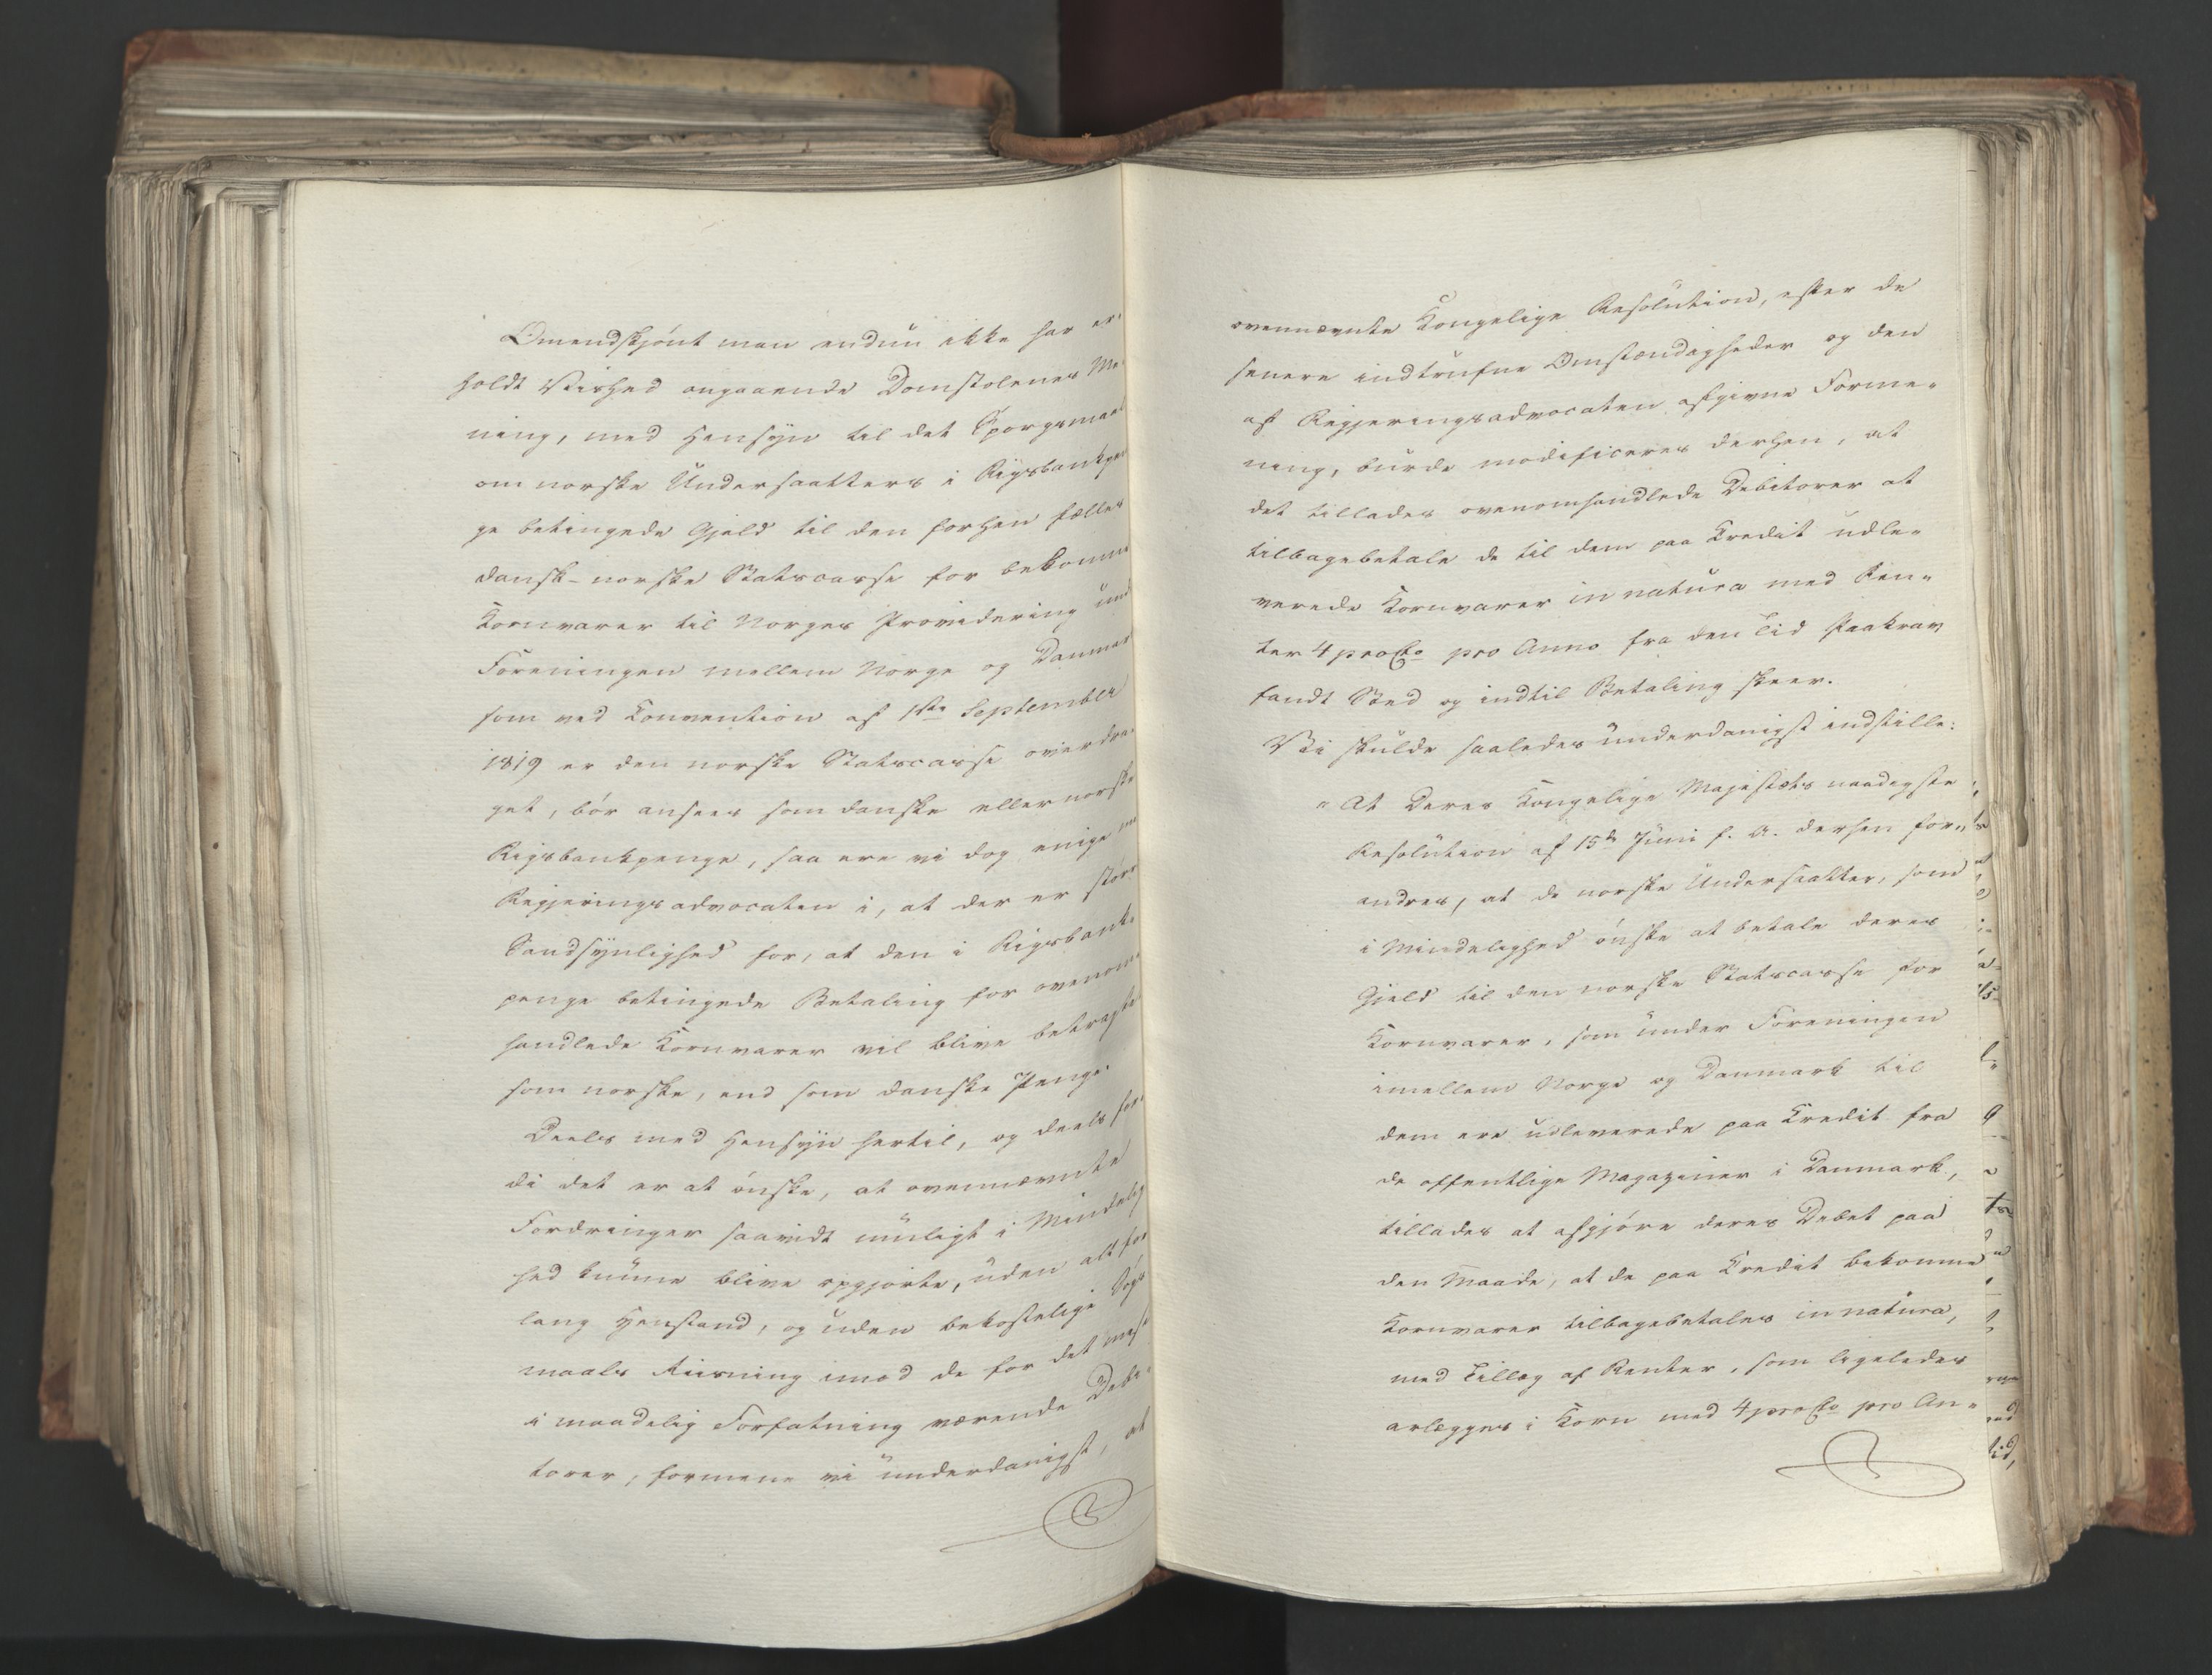 Omendskjönt man endnu ikke har er-
holdt Vished angaaende Domstolenes Me-
ning, med Hensyn til det Spørgsmaal
om norske Undersaatters i Rigsbankpen-
ge betingede Gjæld til den forhen fælles
dansk-norske Statscasse for bekomne
Kornvarer til Norges Providering und
Foreningen mellem Norge og Danmar
som ved Convention af 1ste September
1819 er den norske Statscasse overdra-
get, bör ansees som danske eller norske
Rigsbankpenge, saa ere vi dog enige m
Regjeringsadvocaten i, at der er störr
Sandsynlighed for, at den i Rigsbank-
penge betingede Betaling for ovenom-
handlede Kornvarer vil blive betragtet
som norske, end som danske Penge.
Deels med Hensyn hertil, og deels for-
di det er at önske, at ovennævnte
Fordringer saavidt muligt i Mindelig-
hed kunne blive opgjorte, uden alt for
lang Henstand, og uden bekostelige Sögs-
maals Reisning imod de for det mest
i maadelig Forfatning værende Debi-
torer, formene vi underdanigst, at
ovennævnte Kongelige Resolution, efter de
senere indtrufne Omstændigheder og den
af Regjeringsadvocaten afgivne Forme-
ning, burde modificeres derhen, at
det tillades ovenomhandlede Debitorer at
tilbagebetale de til dem paa Credit udle-
verede Kornvarer in natura med Ren-
ter 4 pro Cto pro Anno fra den Tid Paakrav
fandt Sted og indtil Betaling skeer.
Vi skulde saaledes underdanigst indstille:
"At Deres Kongelige Majestæts naadigste
Resolution af 15de Juni f. A. derhen for-
andres, at de norske Undersaatter, som
i Mindelighed önske at betale deres
Gjæld til den norske Statscasse for
Kornvarer, som under Foreningen
imellem Norge og Danmark til
dem ere udleverede paa Credit fra
de offentlige Magaziner i Danmark,
tillades at afgjöre deres Debet paa
den Maade, at de paa Credit bekomne
Kornvarer tilbagebetales in natura,
med Tillæg af Renter, som ligeledes
erlægges i Korn med 4 pro Cto pro An-